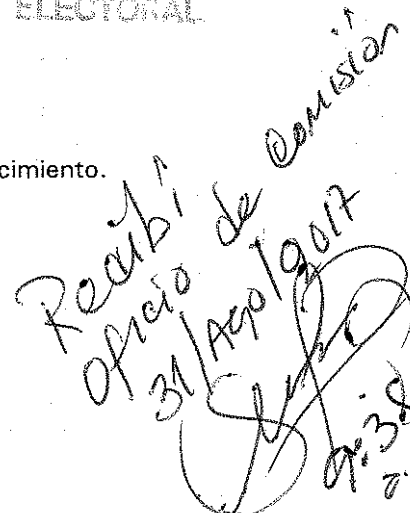 ELECTORAL
cimiento.
Recibí
oficio de comisión
31/Ago/2017
9:38